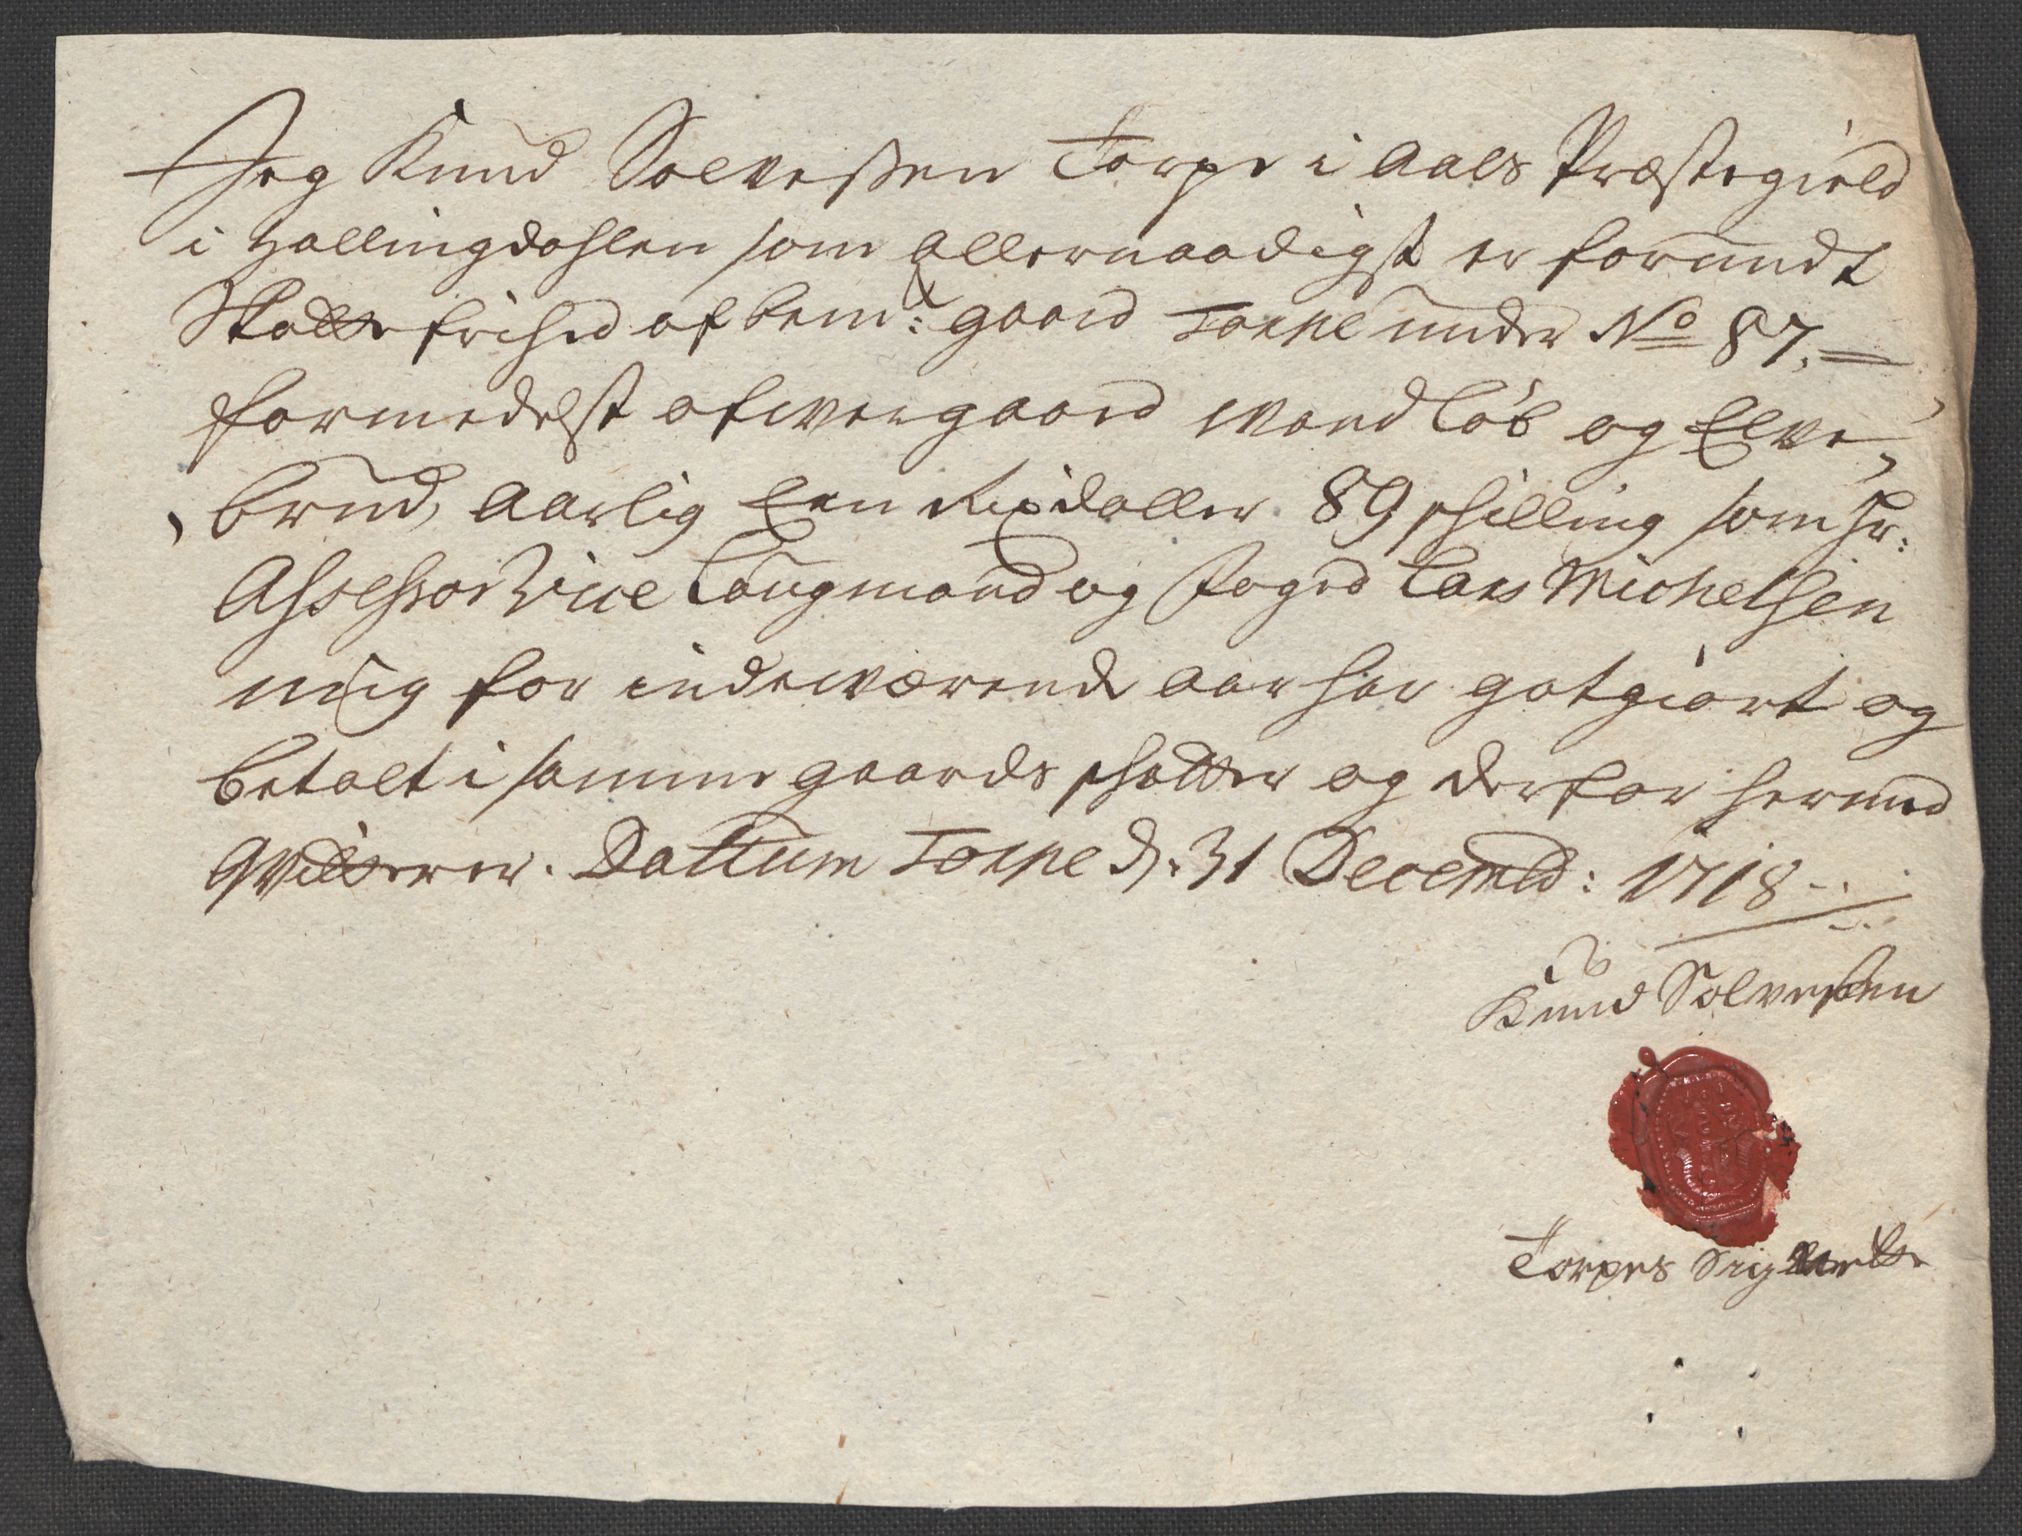 Jeg Knud Solveßen Torpe i Aals Præstegield
i Hallingdahlen som Allernaadigst er forundt
Skatte frihed af bem:t gaard Torpe under No 87.
formedelst ofwergaard wand løb og Elve
brud, Aarlig Een Rixdaller 89 skilling som Hr:
Assessor Vice Laugmand og Foged Lars Michelsen
mig for indeværende aar har gotgiort og
betalt i samme gaards skatter og derfor hermed
Qvitterer. Dattum Torpe d. 31 Decembr: 1718
Knud Solveßen
Torpes